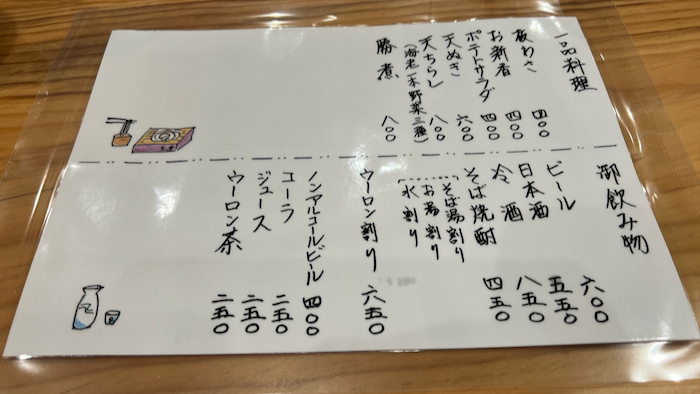 一品料理
板わさ 四〇〇
お新香 四〇〇
ポテトサラダ 四〇〇
天ぬき 六〇〇
天ちらし 八〇〇
(海老一本野菜三種)
勝煮 八〇〇
御飲み物
ビール 六〇〇
日本酒 五五〇
冷酒 八五〇
そば焼酎 四五〇
そば湯割り
お湯割り
水割り
ウーロン割り 六五〇
ノンアルコールビール 四〇〇
コーラ 二五〇
ジュース 二五〇
ウーロン茶 二五〇